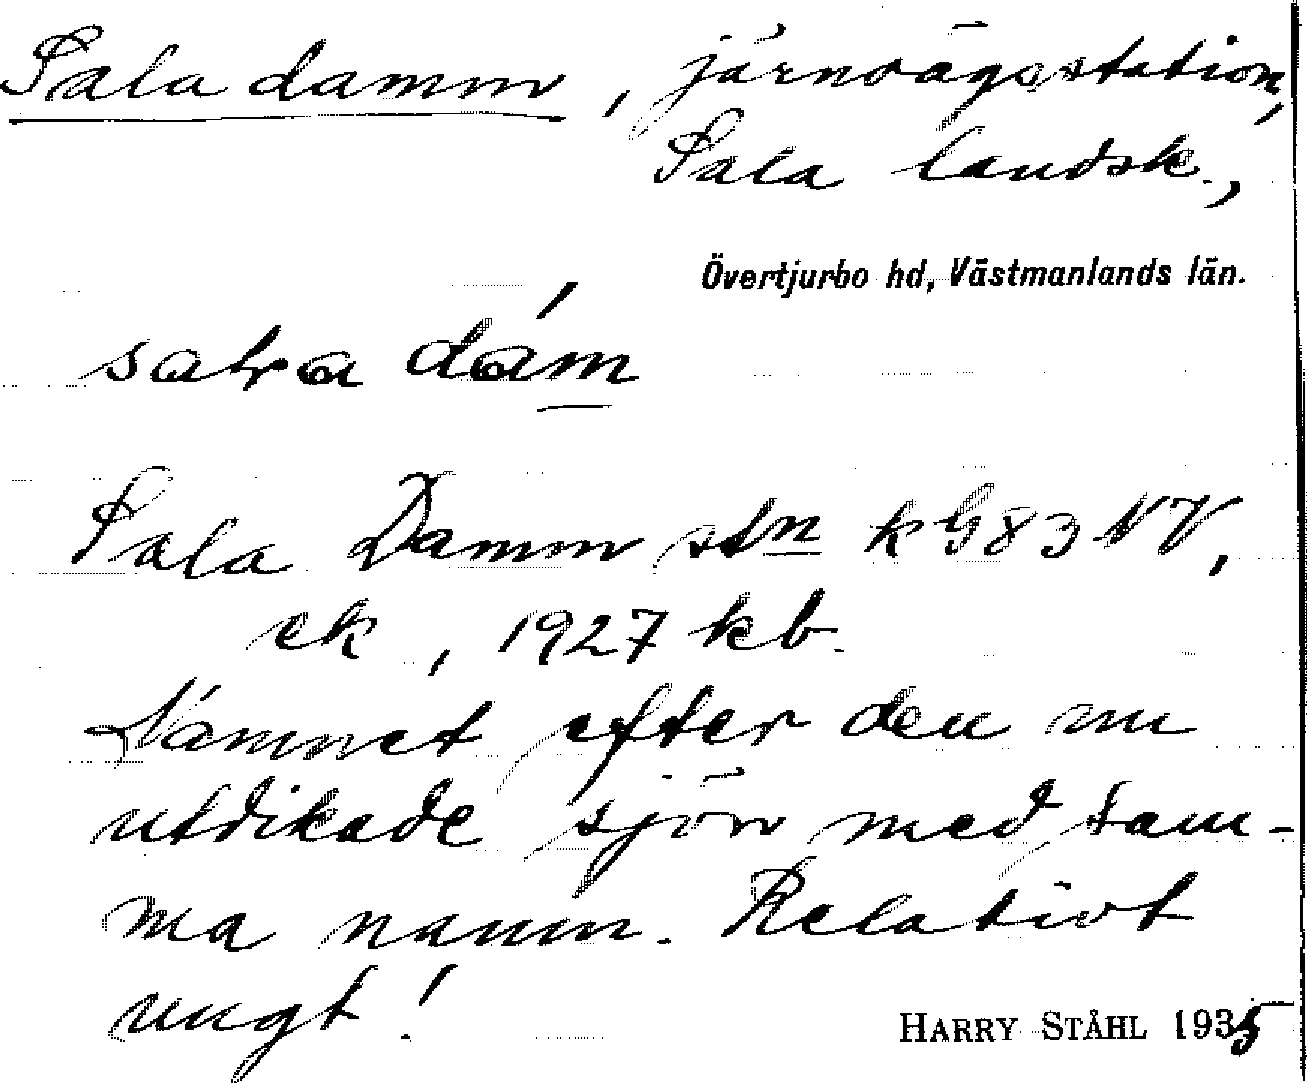 Sala damm, järnvägsstation,
Sala landsk.,
Övertjurbo hd, Västmanlands län.
dám
Sala Damm stn k G83 NV,
ek, 1927 kb.
Namnet efter den nu
utdikade sjön med sam-
ma namn. Relativt
ungt!
HARRY STÅHL 1935